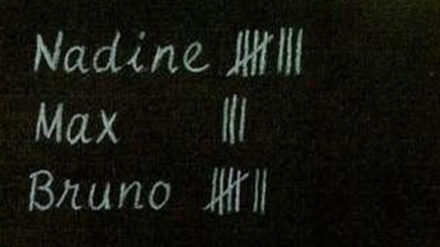 Nadine 𝍸 |||
Max |||
Bruno 𝍸 ||